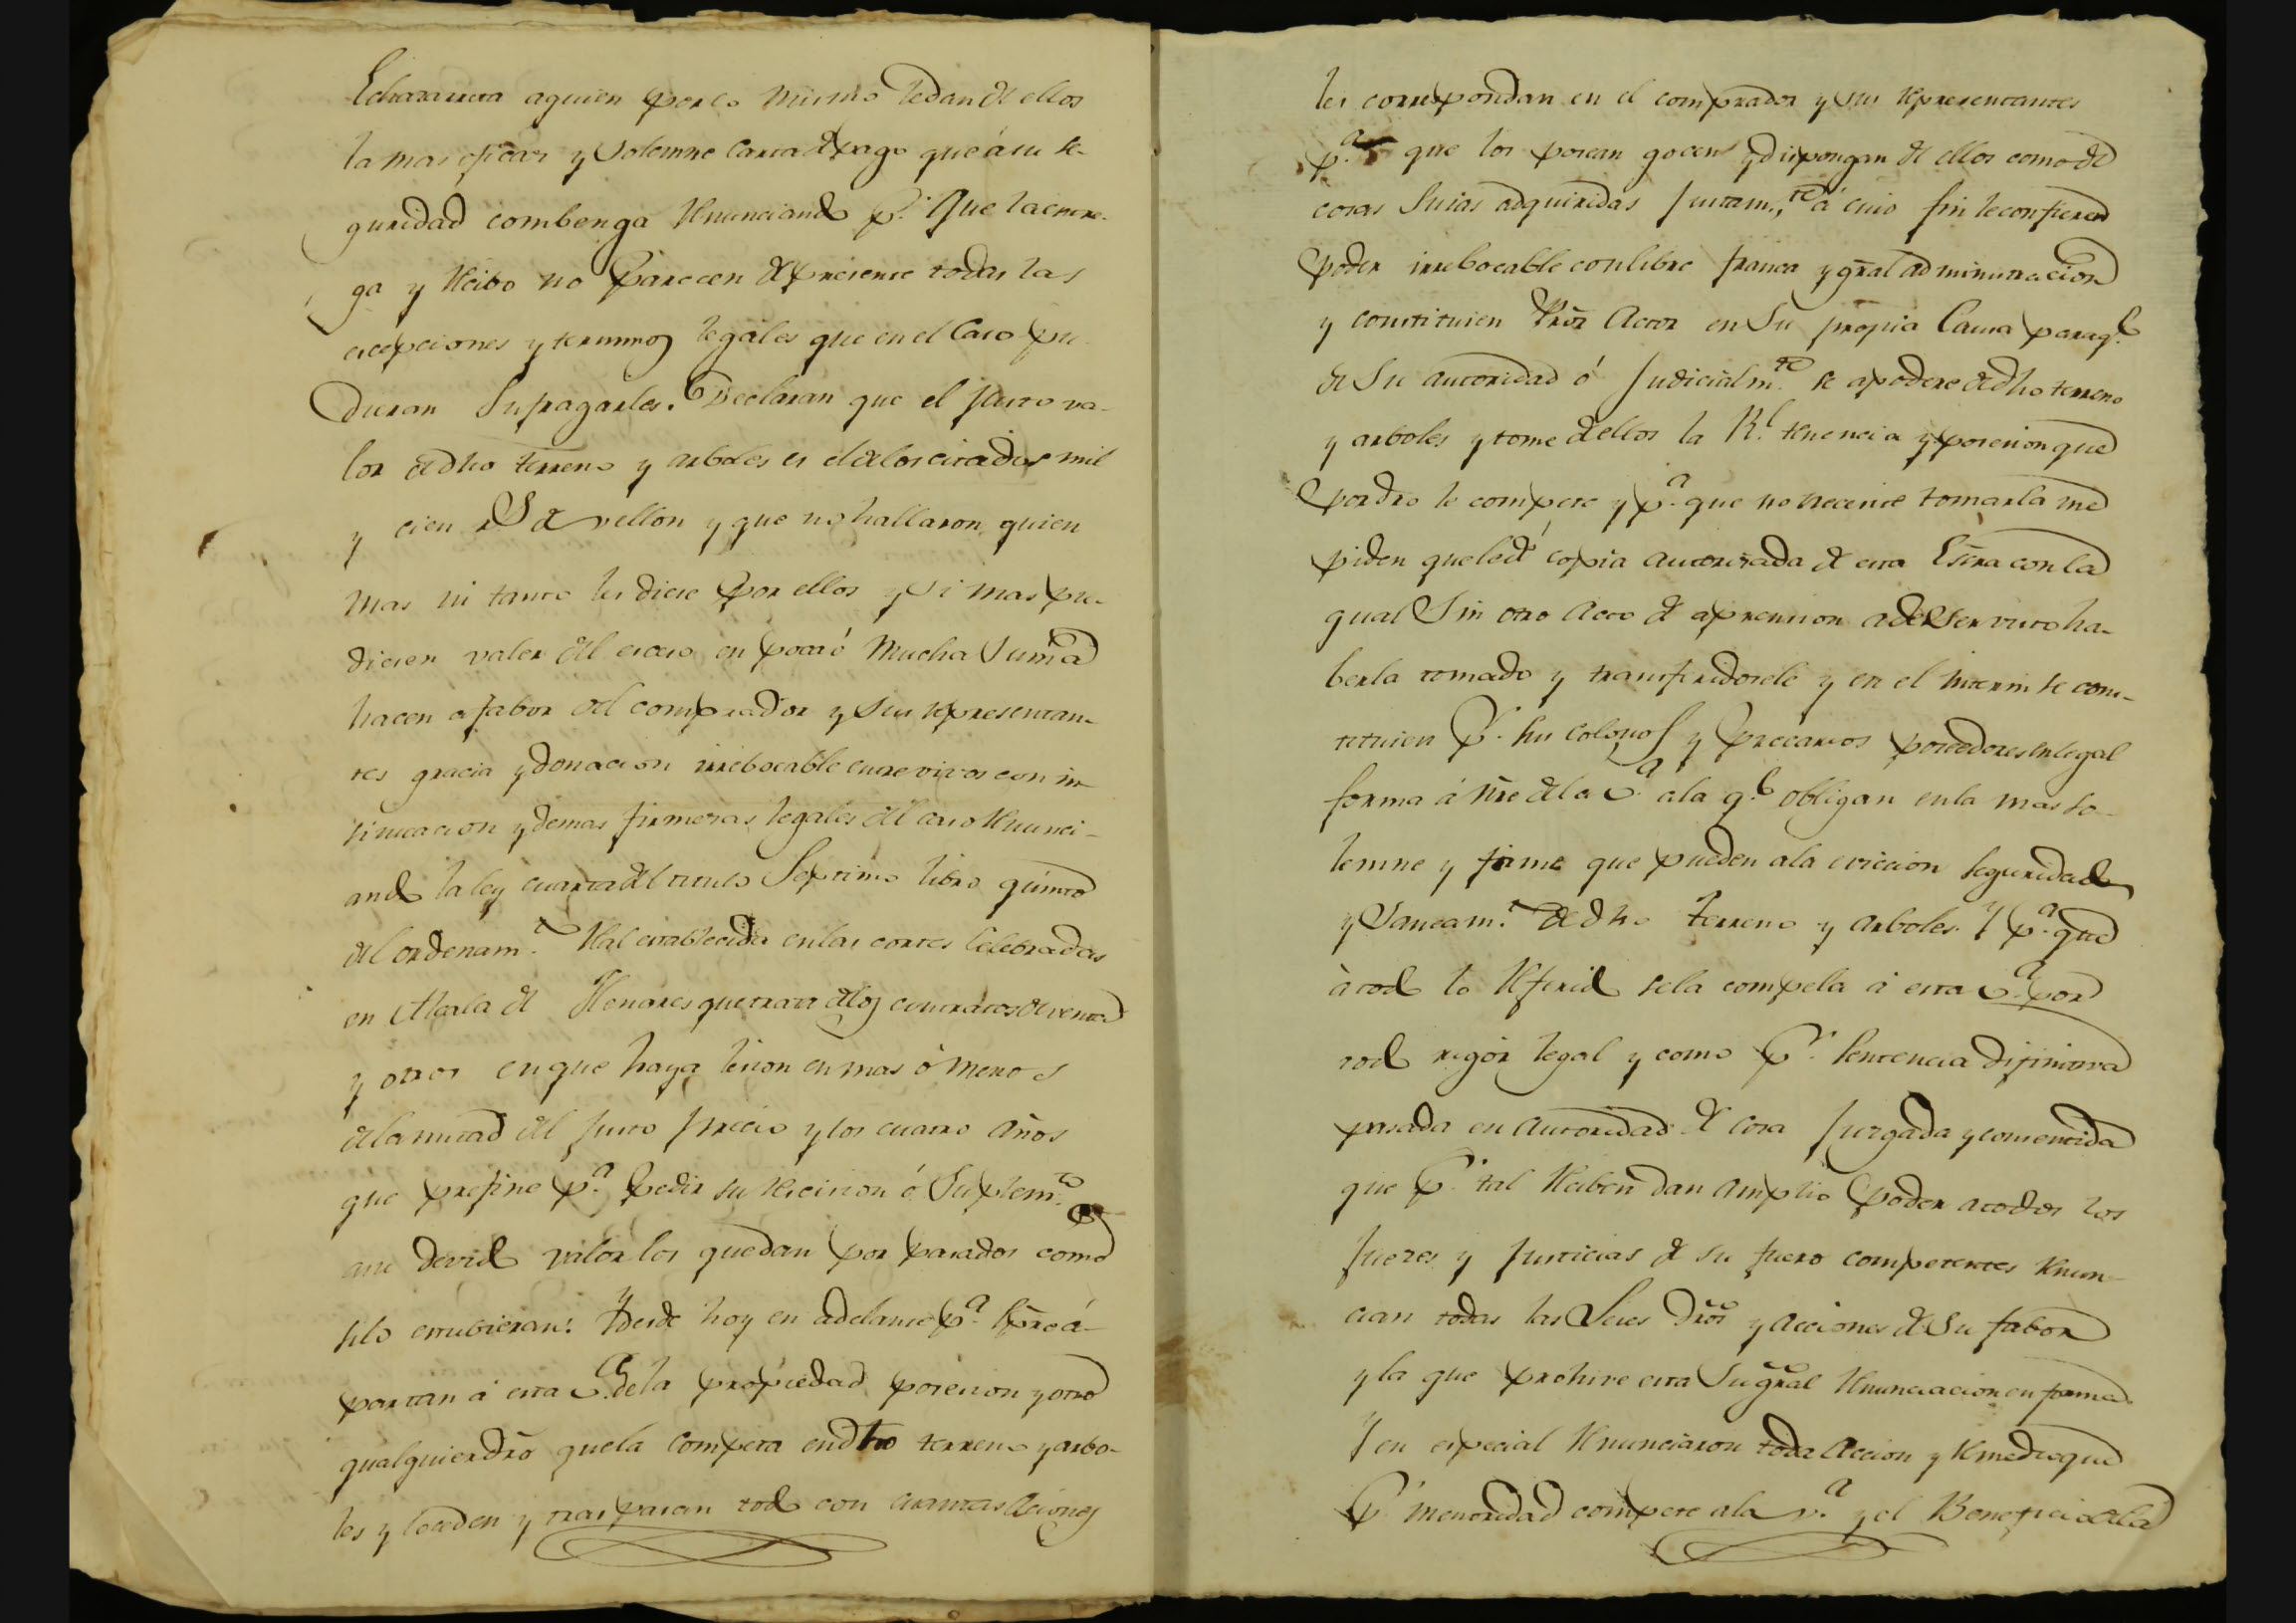 Echavarreta aquien por lo mismo le dan de ellos
la mas eficaz y Solemne Carta de pago que á su se-
guridad combenga renunciando p.r que la entre-
ga y recibo no parecen de presente todas las
excepciones y terminos legales que en el Caso pu-
dieran Sufragarles. Declaran que el Justo va-
lor de dho terreno y arboles es el de los citados mil
y cien r.s de vellon y que no hallaron quien
mas ni tanto les diese por ellos y si mas pu-
diesen valer del exceso en poca ó mucha Suma
hacen a fabor del comprador y sus representan-
tes gracia y donacion irrebocable entre vivos con in-
sinuacion y demas firmezas legales del caso renunci-
ando la ley cuarta del titulo Septimo libro quinto
del ordenam.to Real establecida en las cortes celebradas
en Alcala de Henares que trata de los contratos de venta
y otros en que haya lesion en mas ó menos
de la mitad del justo precio y los cuatro años
que prefine p.a pedir su recision ó Suplem.to
a su devido valor los quedan por pasados como
si lo estubieran: Y desde hoy en adelante p.a spre á-
partan á esta v.a de la propiedad posesion y otro
qualquier dro que la competa en dho terreno y arbo-
les y lo ceden y traspasan todo con cuantas Aciones
les correspondan en el comprador y sus representantes
p.a que los posean gocen y dispongan de ellos como de
cosas Suias adquiridas Justam.te, á cuio fin le confieren
Poder irrebocable con libre franca y gral administracion
y constituien Pror Actor en Su propia Causa para q.e
de Su autoridad ó Judicialm.te se apodere de dho terreno
y arboles y tome de ellos la R.l tenencia y posesion que
por dro le compete y p.a que no necesite tomarla me
piden que le dé copia autorizada de esta Esra con la
qual Sin otro Acto de aprension a de Ser visto ha-
berla tomado y transferidosele y en el interin se cons-
tituien p.r sus colonos y precarios poseedores en legal
forma á nre de la v.a a la q.e obligan en la mas so-
lemne y firme que pueden a la eviccion seguridad
y Saneam.to de dho terreno y arboles. Y p.a que
á todo lo referido se la compela á esta v.a por
todo rigor legal y como p.r Sentencia difinitiva
pasada en autoridad de cosa Juzgada y consentida
que p.r tal reciben dan amplio poder a todos los
Jueces y Justicias de su fuero competentes renun-
cian todas las Leies dros y acciones de Su fabor
y la que prohive esta Su gral renunciacion en forma.
Y en especial renunciaron toda Accion y remedio que
p.r menoridad compete a la v.a y el Beneficio de la